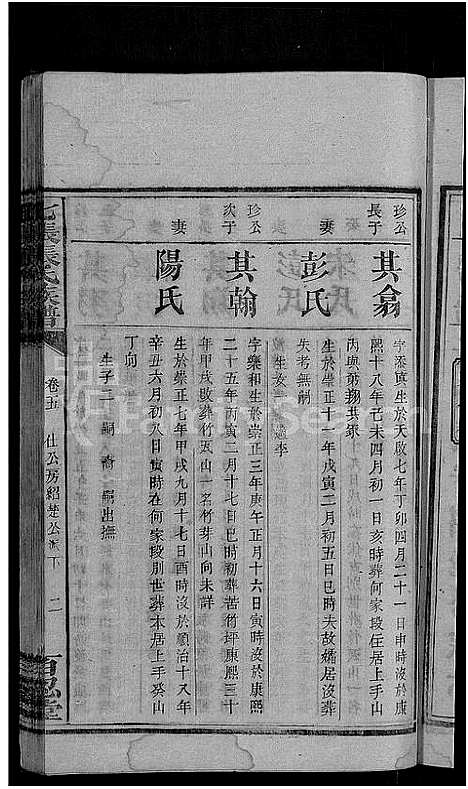 珍公
長子
其翕
字添眞生於天啟七年丁卯四月二十一日申時沒於康
熙十八年己未四月初一日亥時葬何家段住居上手山
丙與弟翔共冢
妻
彭氏
生於崇正十一年戊寅二月初五日巳時夫故孀居沒葬
失考無嗣
生女 適李
珍公
次子
其翰
字樂和生於崇正三年庚午正月十六日寅時沒於康熙
二十五年丙寅二月十七日巳時初葬苦竹坪康熙三十
年甲戌改葬竹瓦山一名竹芽山向未詳
妻
陽氏
生於崇正七年甲戌九月十七日酉時沒於順治十八年
辛丑六月初八日寅時在何家段別世葬本居上手癸山
丁向
生子二 嗣裔 嗣出撫
張氏族譜
卷五
仕公房紹楚公派下
二
百忍堂